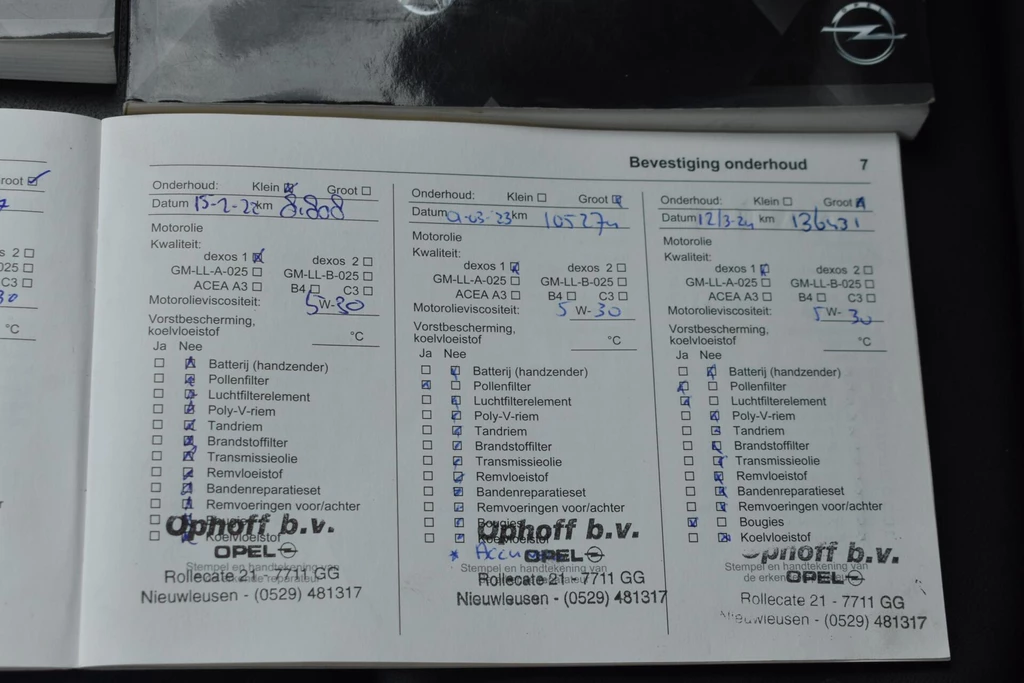 Bevestiging onderhoud 7
root
s 2
025
C3
30
°C
Onderhoud: Klein Groot
Datum 15-2-22 km
Motorolie
Kwaliteit:
dexos 1 dexos 2
GM-LL-A-025 GM-LL-B-025
ACEA A3 B4 C3
Motorolieviscositeit: 5W-30
Vorstbescherming,
koelvloeistof °C
Ja Nee
Batterij (handzender)
Pollenfilter
Luchtfilterelement
Poly-V-riem
Tandriem
Brandstoffilter
Transmissieolie
Remvloeistof
Bandenreparatieset
Remvoeringen voor/achter
Koelvloeistof
Ophoff b.v.
OPEL
Stempel en handtekening van
Rollecate 21 - 7711 GG
Nieuwleusen - (0529) 481317
Onderhoud: Klein Groot
Datum 9-03-23 km 105274
Motorolie
Kwaliteit:
dexos 1 dexos 2
GM-LL-A-025 GM-LL-B-025
ACEA A3 B4 C3
Motorolieviscositeit: 5 W-30
Vorstbescherming,
koelvloeistof °C
Ja Nee
Batterij (handzender)
Pollenfilter
Luchtfilterelement
Poly-V-riem
Tandriem
Brandstoffilter
Transmissieolie
Remvloeistof
Bandenreparatieset
Remvoeringen voor/achter
Bougies
Koelvloeistof
* Accu
Ophoff b.v.
OPEL
Stempel en handtekening van
Rollecate 21 - 7711 GG
Nieuwleusen - (0529) 481317
Onderhoud: Klein Groot
Datum 12/3-24 km 136431
Motorolie
Kwaliteit:
dexos 1 dexos 2
GM-LL-A-025 GM-LL-B-025
ACEA A3 B4 C3
Motorolieviscositeit: 5 W-30
Vorstbescherming,
koelvloeistof °C
Ja Nee
Batterij (handzender)
Pollenfilter
Luchtfilterelement
Poly-V-riem
Tandriem
Brandstoffilter
Transmissieolie
Remvloeistof
Bandenreparatieset
Remvoeringen voor/achter
Bougies
Koelvloeistof
Ophoff b.v.
Stempel en handtekening van
OPEL
Rollecate 21 - 7711 GG
Nieuwleusen - (0529) 481317